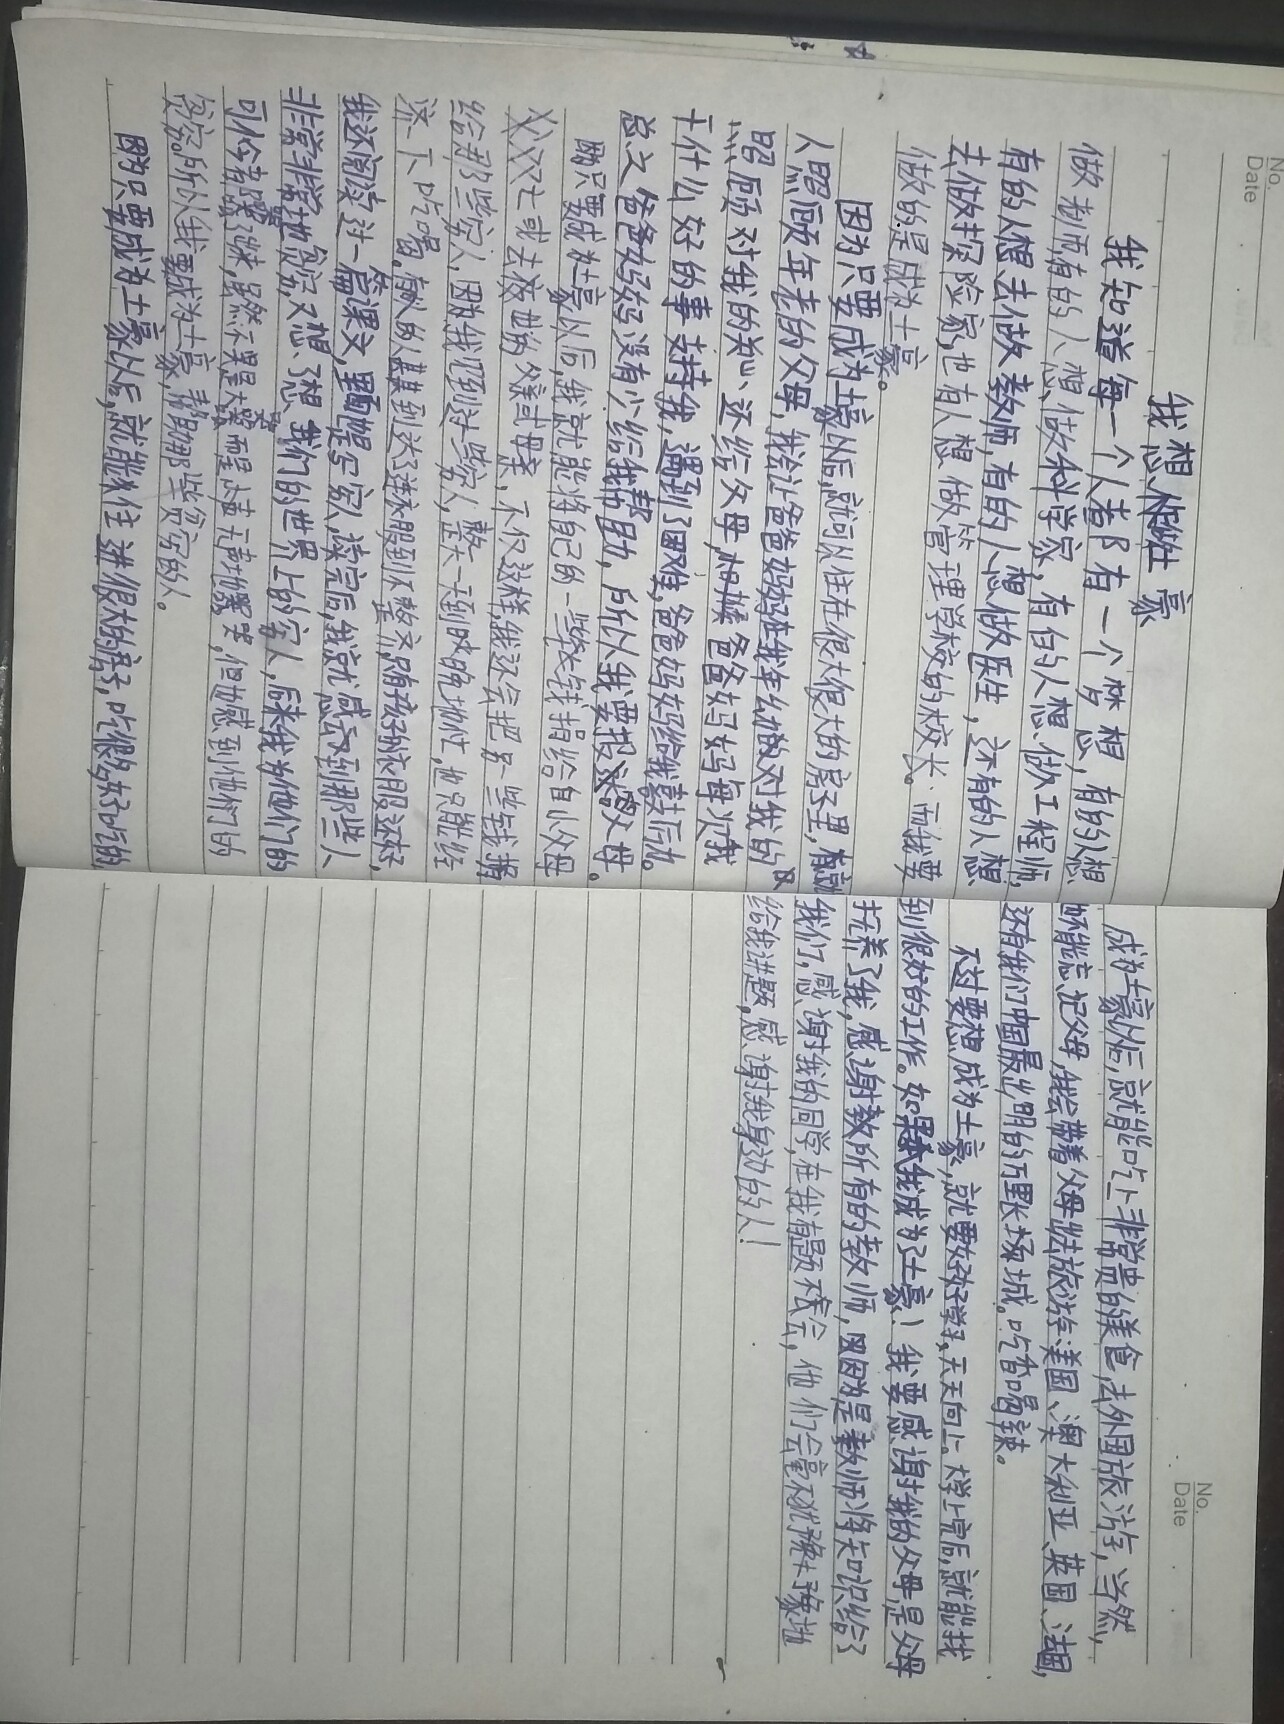 No.
Date
我想做土豪
我知道每一个人都有一个梦想,有的人想
做教师,有的人想做科学家,有的人想做工程师,
有的人想去做教师,有的人想做医生,还有的人想
去做探险家,也有人想做管理学校的校长。而我要
做的是成为土豪。
因为只要成为土豪以后,就可以住在很大很大的房子里,有
人照顾年老的父母,我会让爸爸妈妈在我年幼时对我的
照顾对我的关心、还给父母,爸爸妈妈每次我
干什么好的事支持我,遇到了困难,爸爸妈妈给我鼓励。
总之爸爸妈妈没有少给我帮助,所以我要报答父母。
因为只要成为土豪以后,我就能将自己的一些钱捐给自父母
或去救世的父亲或母亲,不仅这样,我还会把另一些钱捐
给那些穷人,因为我见到过一些穷人,整天一天到晚地忙,也只能经
济一下吃喝。有的人甚到达了连衣服到不整齐,
我还阅读过一篇课文,里面是写穷人,读完后,我就感受到那些人
非常非常地贫穷,又想了想,我们的世界上的穷人,后来我为他们的
可怜,虽然不是大哭而是小声无声地哭,但也感到他们的
贫穷。所以我要成为土豪,帮助那些贫穷的人。
因为只要成为土豪以后,就能住进很大的房子,吃很多好吃的
No.
Date
成为土豪以后,就能吃上非常贵的美食,去外国旅游,当然,
也不能忘记父母,我会带着父母一起去旅游美国、澳大利亚、英国、法国,
还有我们中国最出名的万里长城。吃香喝辣。
不过要想成为土豪,就要好好学习,天天向上。大学上完后,就能找
到很好的工作。如果我成为了土豪!我要感谢我的父母,是父母
抚养了我,感谢教所有的教师,因为是教师将知识给了
我们,感谢我的同学,在我有题不会,他们会毫不犹豫地
给我讲题,感谢我身边的人!